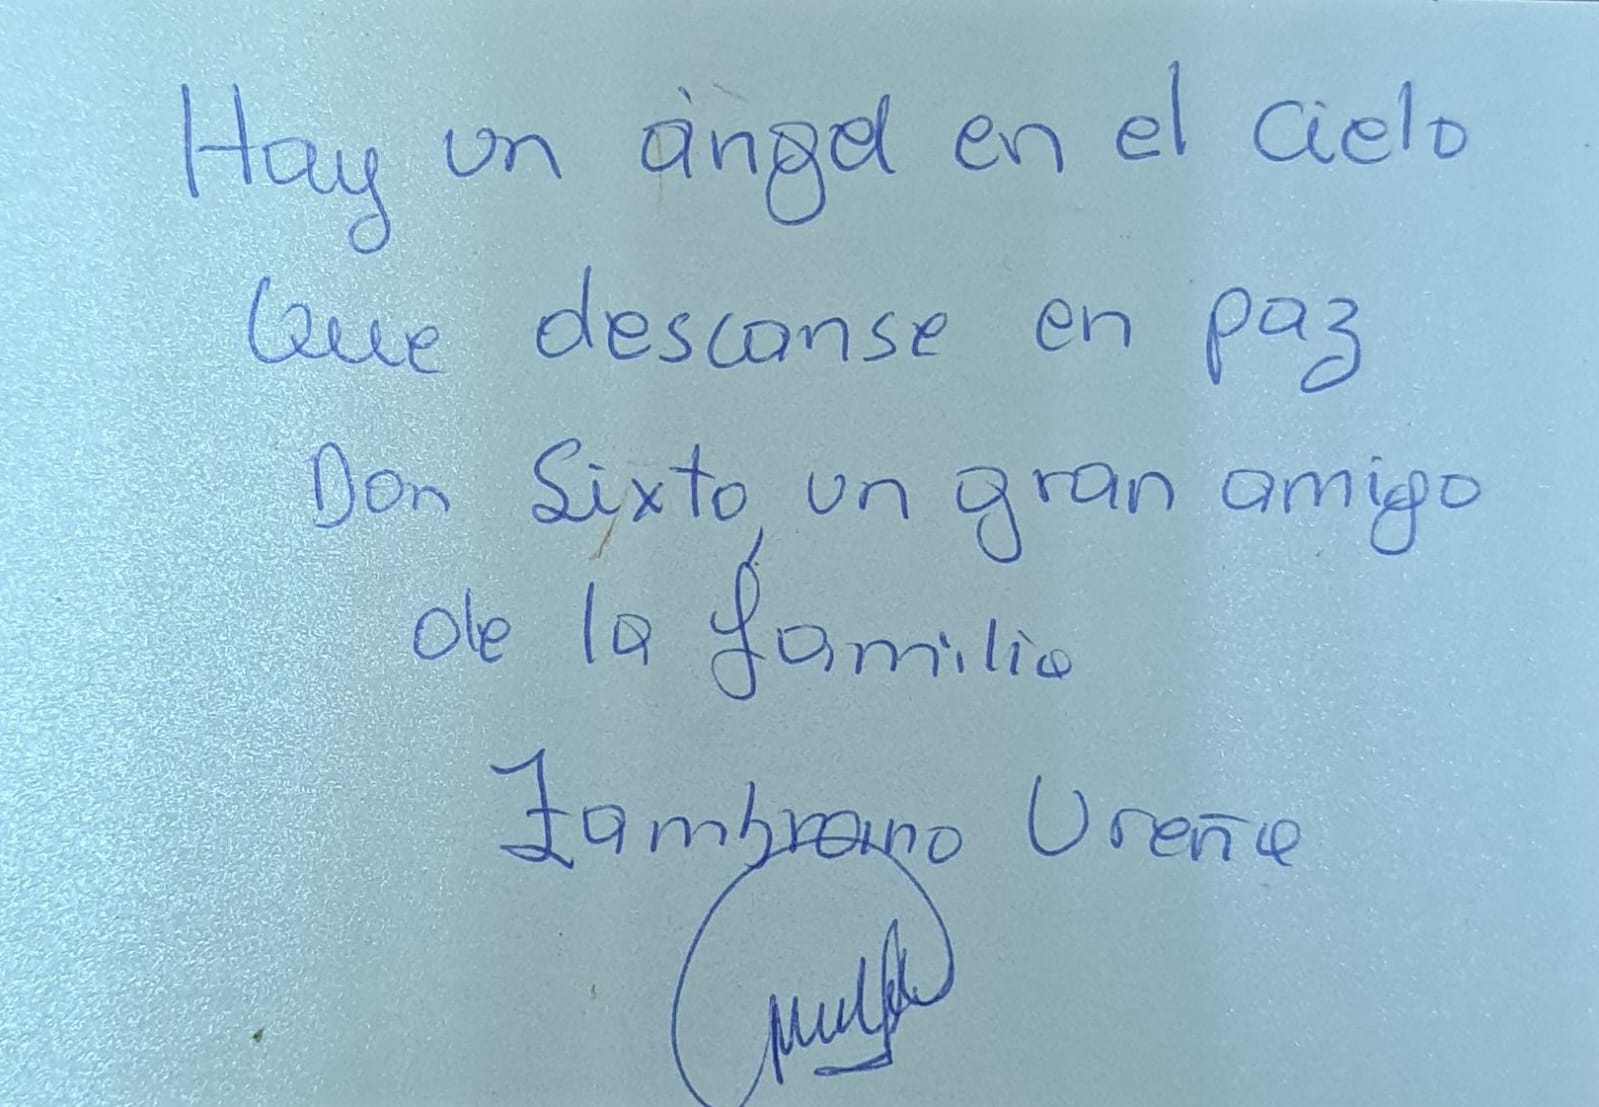 Hay un ángel en el cielo
Que descanse en paz
Don Sixto, un gran amigo
de la familia
Zambrano Ureña